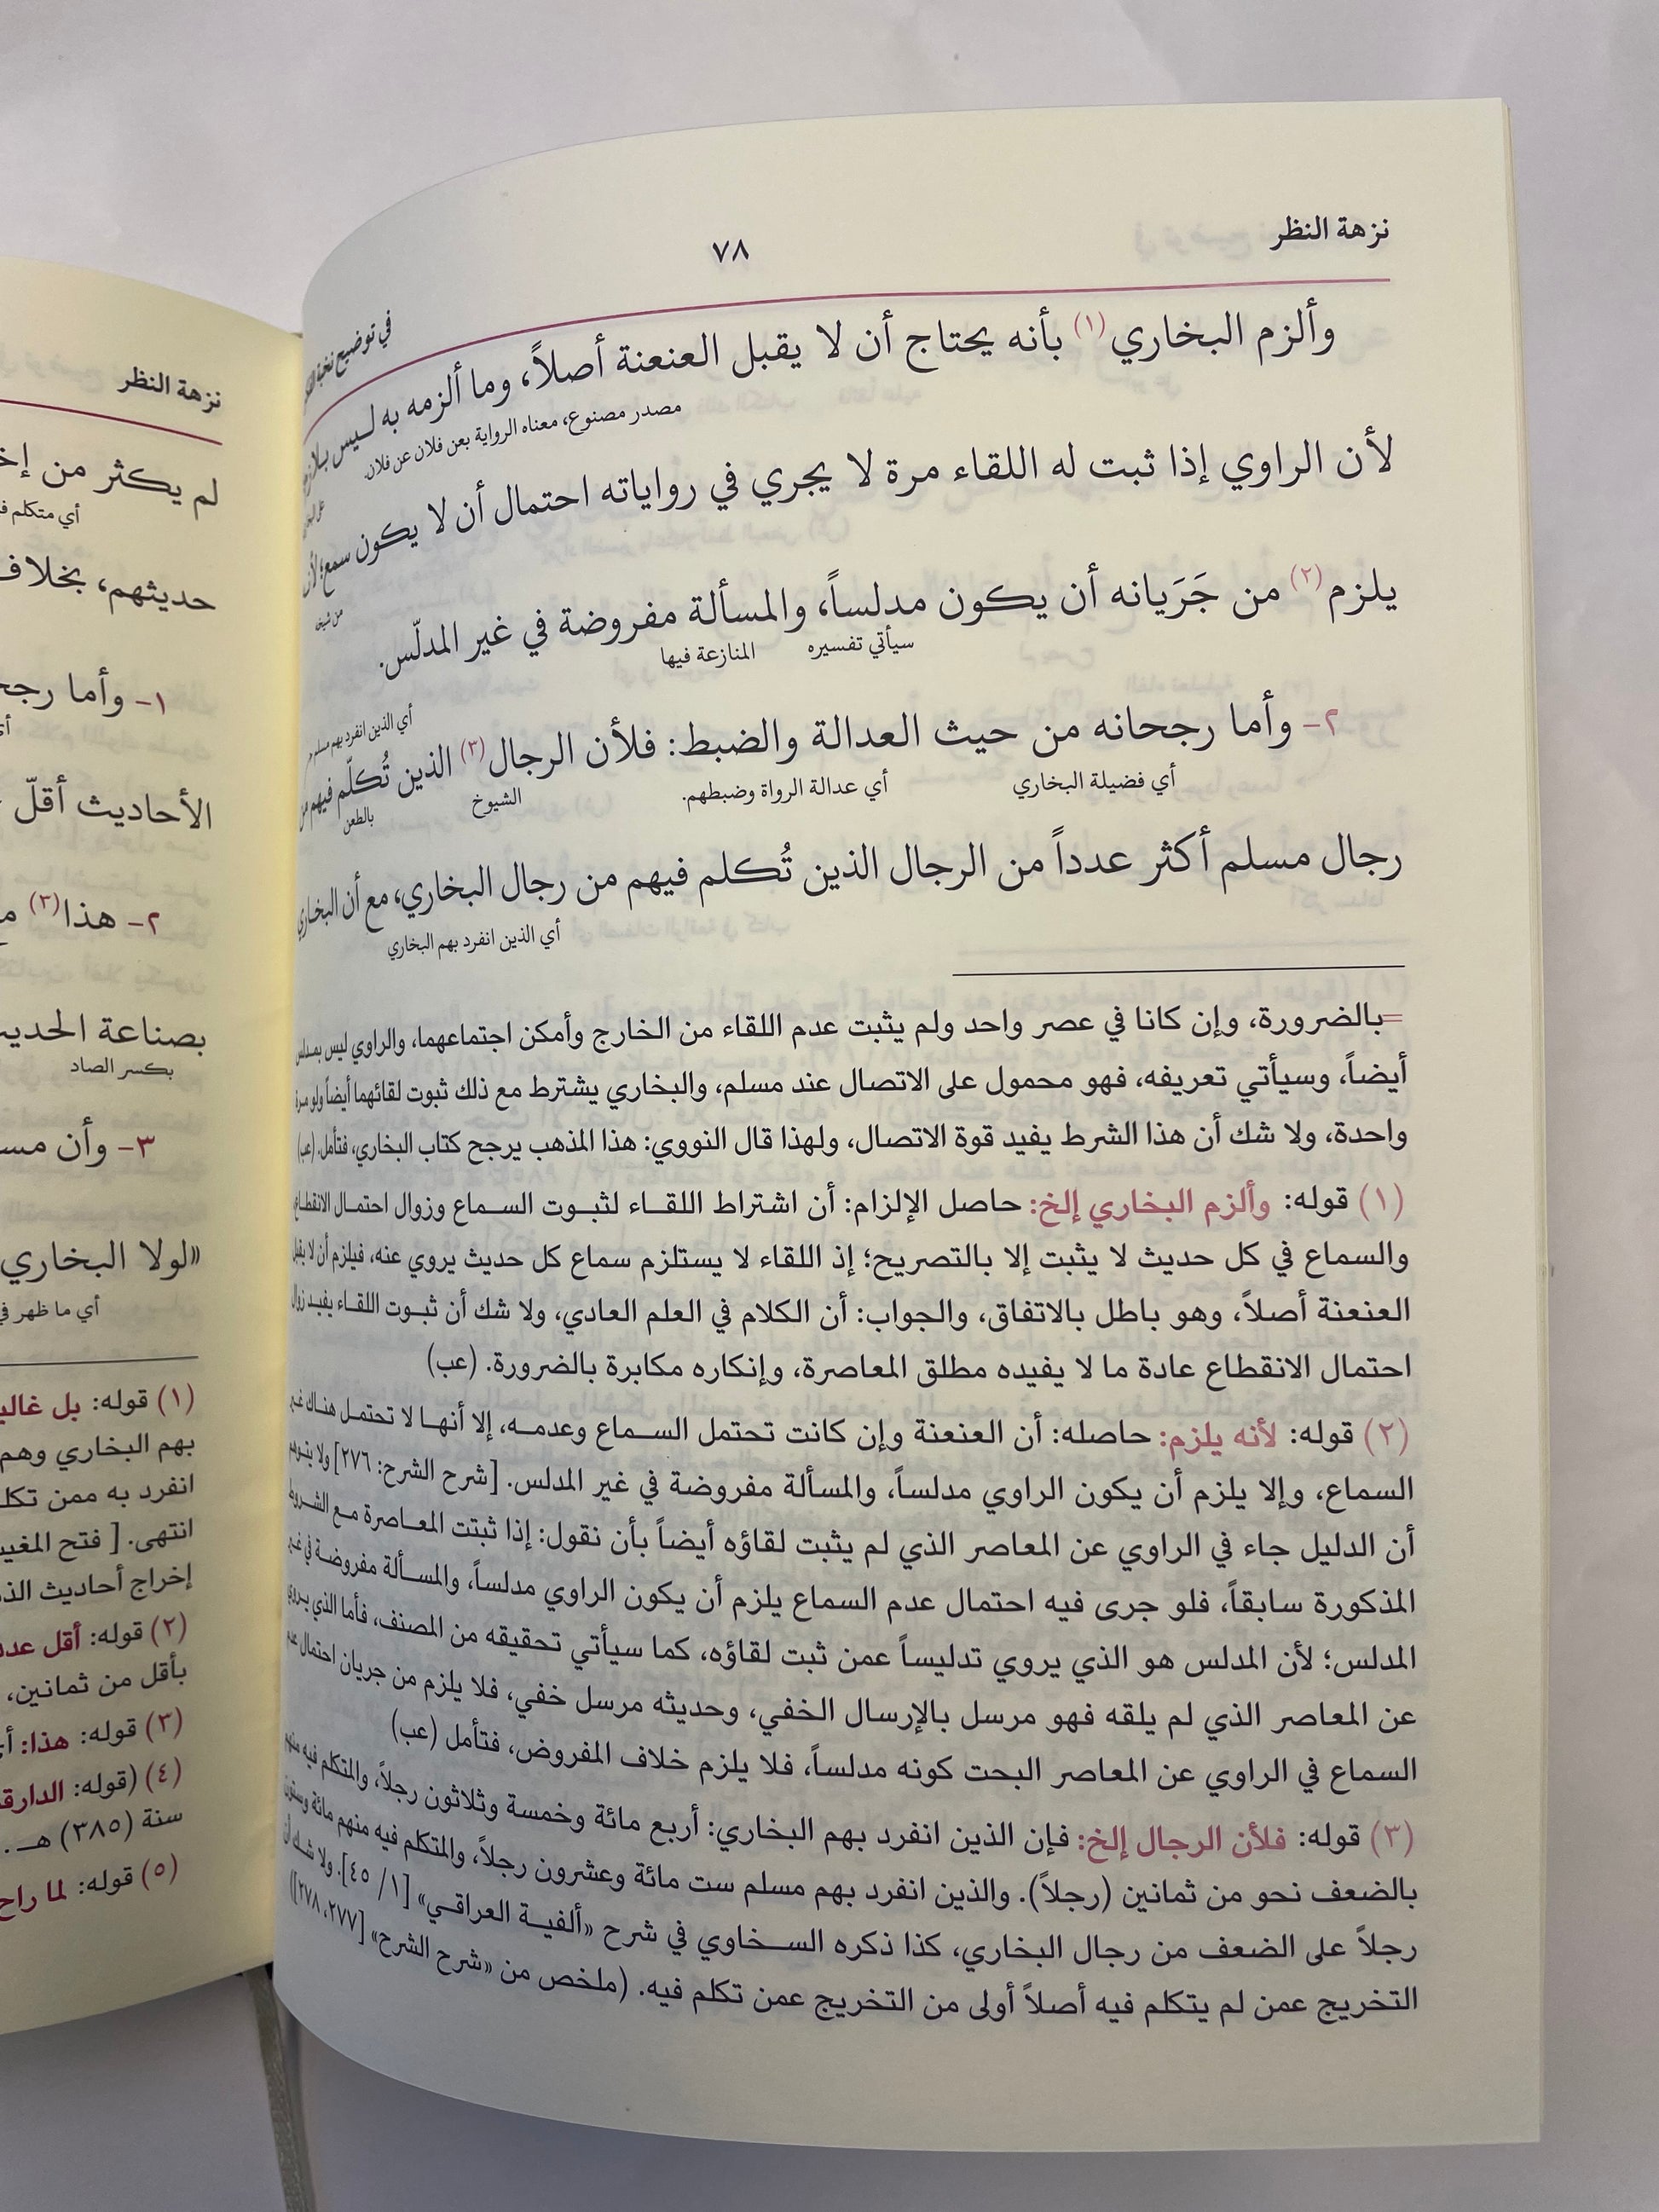 نزهة النظر
٧٨
في توضيح نخبة
وألزم البخاري(١) بأنه يحتاج أن لا يقبل العنعنة أصلاً، وما ألزمه به ليس بلازم
مصدر مصنوع، معناه الرواية بعن فلان عن فلان.
لأن الراوي إذا ثبت له اللقاء مرة لا يجري في رواياته احتمال أن لا يكون سمع؛ لأنه
من شيخه
يلزم(٢) من جَرَيانه أن يكون مدلساً، والمسألة مفروضة في غير المدلّس.
سيأتي تفسيره المنازعة فيها
أي الذين انفرد بهم مسلم
٢- وأما رجحانه من حيث العدالة والضبط: فلأن الرجال(٣) الذين تُكلّم فيهم من
أي فضيلة البخاري أي عدالة الرواة وضبطهم. الشيوخ بالطعن
رجال مسلم أكثر عدداً من الرجال الذين تُكلم فيهم من رجال البخاري، مع أن البخاري
أي الذين انفرد بهم البخاري
=بالضرورة، وإن كانا في عصر واحد ولم يثبت عدم اللقاء من الخارج وأمكن اجتماعهما، والراوي ليس بمدلس
أيضاً، وسيأتي تعريفه، فهو محمول على الاتصال عند مسلم، والبخاري يشترط مع ذلك ثبوت لقائهما أيضاً ولو مرة
واحدة، ولا شك أن هذا الشرط يفيد قوة الاتصال، ولهذا قال النووي: هذا المذهب يرجح كتاب البخاري، فتأمل. (عب)
(١) قوله: وألزم البخاري إلخ: حاصل الإلزام: أن اشتراط اللقاء لثبوت السماع وزوال احتمال الانقطاع
والسماع في كل حديث لا يثبت إلا بالتصريح؛ إذ اللقاء لا يستلزم سماع كل حديث يروي عنه، فيلزم أن لا يقبل
العنعنة أصلاً، وهو باطل بالاتفاق، والجواب: أن الكلام في العلم العادي، ولا شك أن ثبوت اللقاء يفيد زوال
احتمال الانقطاع عادة ما لا يفيده مطلق المعاصرة، وإنكاره مكابرة بالضرورة. (عب)
(٢) قوله: لأنه يلزم: حاصله: أن العنعنة وإن كانت تحتمل السماع وعدمه، إلا أنها لا تحتمل هناك غير
السماع، وإلا يلزم أن يكون الراوي مدلساً، والمسألة مفروضة في غير المدلس. [شرح الشرح: ٢٧٦] ولا يتوهم
أن الدليل جاء في الراوي عن المعاصر الذي لم يثبت لقاؤه أيضاً بأن نقول: إذا ثبتت المعاصرة مع الشروط
المذكورة سابقاً، فلو جرى فيه احتمال عدم السماع يلزم أن يكون الراوي مدلساً، والمسألة مفروضة في غير
المدلس؛ لأن المدلس هو الذي يروي تدليساً عمن ثبت لقاؤه، كما سيأتي تحقيقه من المصنف، فأما الذي يروي
عن المعاصر الذي لم يلقه فهو مرسل بالإرسال الخفي، وحديثه مرسل خفي، فلا يلزم من جريان احتمال عدم
السماع في الراوي عن المعاصر البحت كونه مدلساً، فلا يلزم خلاف المفروض، فتأمل (عب)
(٣) قوله: فلأن الرجال إلخ: فإن الذين انفرد بهم البخاري: أربع مائة وخمسة وثلاثون رجلاً، والمتكلم فيه منهم
بالضعف نحو من ثمانين (رجلاً). والذين انفرد بهم مسلم ست مائة وعشرون رجلاً، والمتكلم فيه منهم مائة وستون
رجلاً على الضعف من رجال البخاري، كذا ذكره السخاوي في شرح «ألفية العراقي» [١/ ٤٥]. ولا شك أن
التخريج عمن لم يتكلم فيه أصلاً أولى من التخريج عمن تكلم فيه. (ملخص من «شرح الشرح» [٢٧٧، ٢٧٨])
نزهة النظر
لم يكثر من
أي متكلم
حديثهم، بخلاف
١- وأما
الأحاديث أقلّ
٢- هذا(٣)
بصناعة الحديث
بكسر الصاد
٣- وأن
«لولا البخاري
أي ما ظهر
(١) قوله: بل
بهم البخاري وهم
انفرد به ممن
انتهى. [فتح المغيث
إخراج أحاديث
(٢) قوله: أقل
بأقل من ثمانين،
(٣) قوله: هذا:
(٤) (قوله:
سنة (٣٨٥) هـ.
(٥) قوله: لما راح